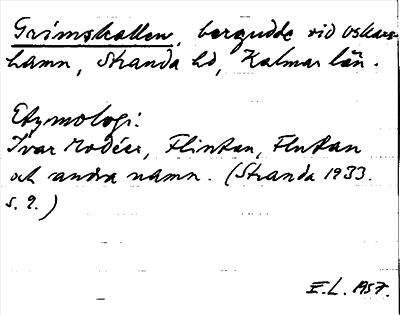 Grimskallen, bergudde vid Oskars-
hamn, Stranda hd, Kalmar län.
Etymologi:
Ivar Modéer, Flintan, Flutan
och andra namn. (Stranda 1933.
s. 9.)
E.L. 1957.